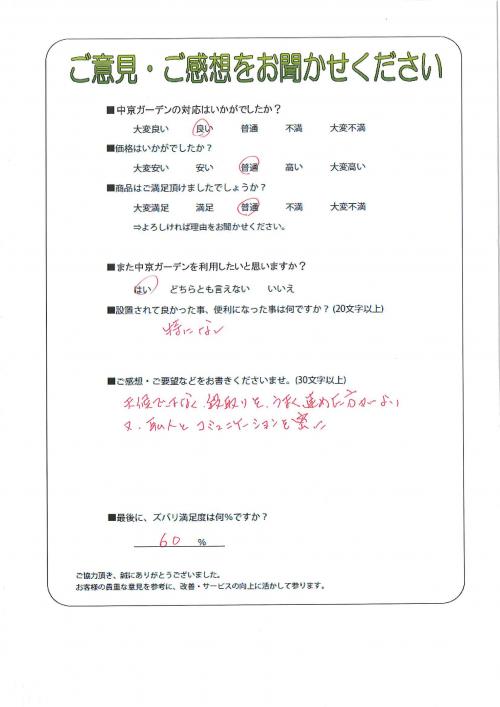 ご意見・ご感想をお聞かせください
■中京ガーデンの対応はいかがでしたか?
大変良い 良い 普通 不満 大変不満
■価格はいかがでしたか?
大変安い 安い 普通 高い 大変高い
■商品はご満足頂けましたでしょうか?
大変満足 満足 普通 不満 大変不満
⇒よろしければ理由をお聞かせください。
■また中京ガーデンを利用したいと思いますか?
はい どちらとも言えない いいえ
■設置されて良かった事、便利になった事は何ですか?(20文字以上)
特になし
■ご感想・ご要望などをお書きくださいませ。(30文字以上)
段取りを、うまく進めた方がよい
又、職人とコミュニケーションを密に
■最後に、ズバリ満足度は何%ですか?
60 %
ご協力頂き、誠にありがとうございました。
お客様の貴重な意見を参考に、改善・サービスの向上に活かして参ります。